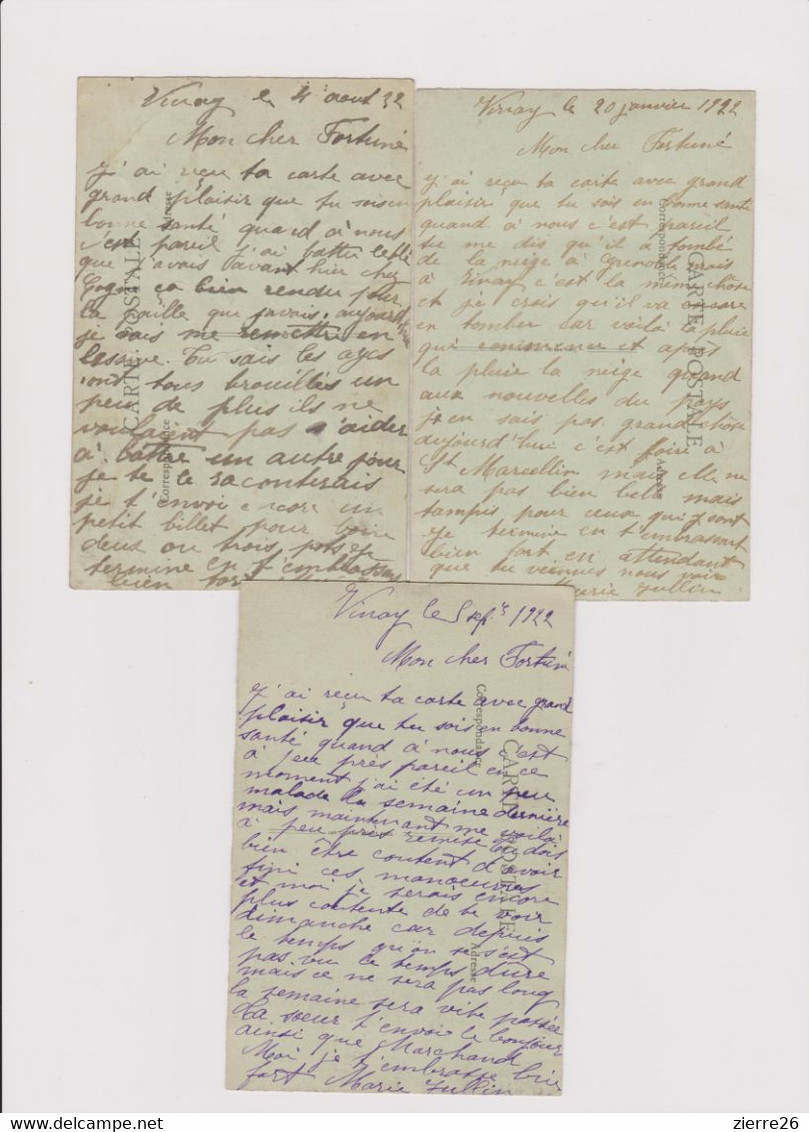 Vinay le 4 aout 22
Mon cher Fortuné
j'ai reçu ta carte avec
grand plaisir que tu sois en
bonne santé quand à nous
c'est pareil j'ai battu le blé
que j'avais avant hier chez
ça bien rendu pour
la paille que j'avais aujourd'hui
je vais me remettre en
lessive. Tu sais les
sont tous brouillés un
peu de plus ils ne
voulaient pas s'aider
à battre un autre jour
je te le raconterais
je t'envoi encore un
petit billet pour boire
deux ou trois pots je
termine en t'embrassant
bien fort
CARTE POSTALE
Correspondance
Adresse
Vinay le 20 janvier 1922
Mon cher Fortuné
j'ai reçu ta carte avec grand
plaisir que tu sois en bonne santé
quand à nous c'est pareil
tu me dis qu'il a tombé
de la neige à Grenoble mais
à Vinay c'est la meme chose
et je crois qu'il va encore
en tomber car voilà la pluie
qui commence et après
la pluie la neige quand
aux nouvelles du pays
j'en sais pas grand chose
aujourd'hui c'est foire à
St Marcellin mais elle ne
sera pas bien belle mais
tampis pour ceux qui y sont
je termine en t'embrassant
bien fort en attendant
que tu viennes nous voir
Marie Jullin
CARTE POSTALE
Correspondance
Adresse
Vinay le 5 sept 1922
Mon cher Fortuné
j'ai reçu ta carte avec grand
plaisir que tu sois en bonne
santé quand à nous c'est
à peu près pareil en ce
moment j'ai été un peu
malade la semaine dernière
mais maintenant me voilà
à peu près remise tu dois
bien être content d'avoir
fini ces manoeuvres
et moi je serais encore
plus contente de te voir
dimanche car depuis
le temps qu'on se s'est
pas vu ce temps dure
mais ce ne sera pas long
la semaine sera vite passée
Ta soeur t'envoi le bonjour
ainsi que Marchand
Moi je t'embrasse bien
fort Marie Jullin
CARTE POSTALE
Correspondance
Adresse
delcampe.net
zierre26